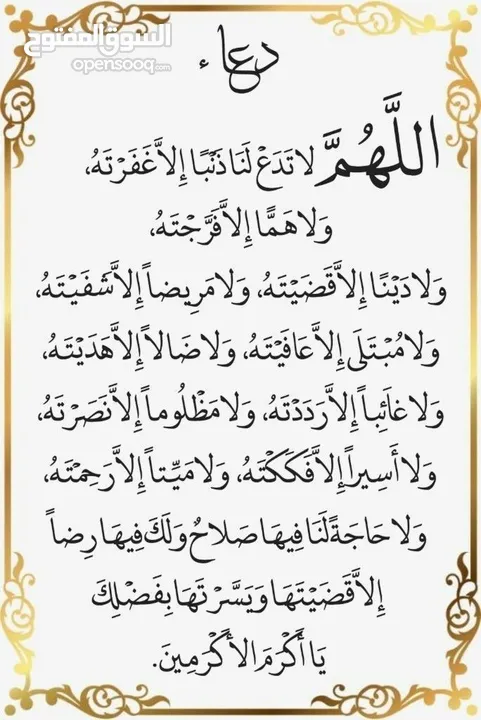 السوق المفتوح
opensooq.com
دعاء
اللَّهُمَّ لَا تَدَعْ لَنَا ذَنْبًا إِلاَّ غَفَرْتَهُ،
وَلَا هَمًّا إِلاَّ فَرَّجْتَهُ،
وَلَا دَيْنًا إِلاَّ قَضَيْتَهُ، وَلَا مَرِيضاً إِلاَّ شَفَيْتَهُ،
وَلَا مُبْتَلَى إِلاَّ عَافَيْتَهُ، وَلَا ضَالاً إِلاَّ هَدَيْتَهُ،
وَلَا غَائِباً إِلاَّ رَدَدْتَهُ، وَلَا مَظْلُوماً إِلاَّ نَصَرْتَهُ،
وَلَا أَسِيراً إِلاَّ فَكَكْتَهُ، وَلَا مَيِّتاً إِلاَّ رَحِمْتَهُ،
وَلَا حَاجَةً لَنَا فِيهَا صَلَاحُ وَلَكَ فِيهَا رِضاً
إِلاَّ قَضَيْتَهَا وَيَسَّرْتَهَا بِفَضْلِكَ
يَا أَكْرَمَ الأَكْرَمِينَ.